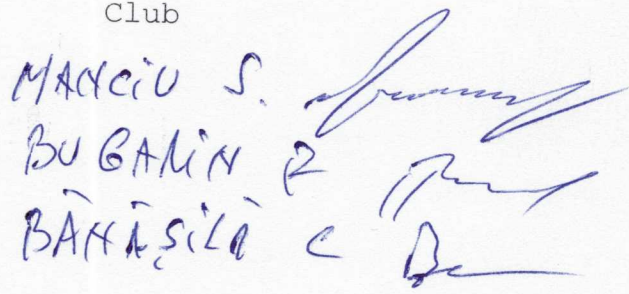 Club
MANCiU S.
BUGARiN R
BĂNĂŞiLĂ C